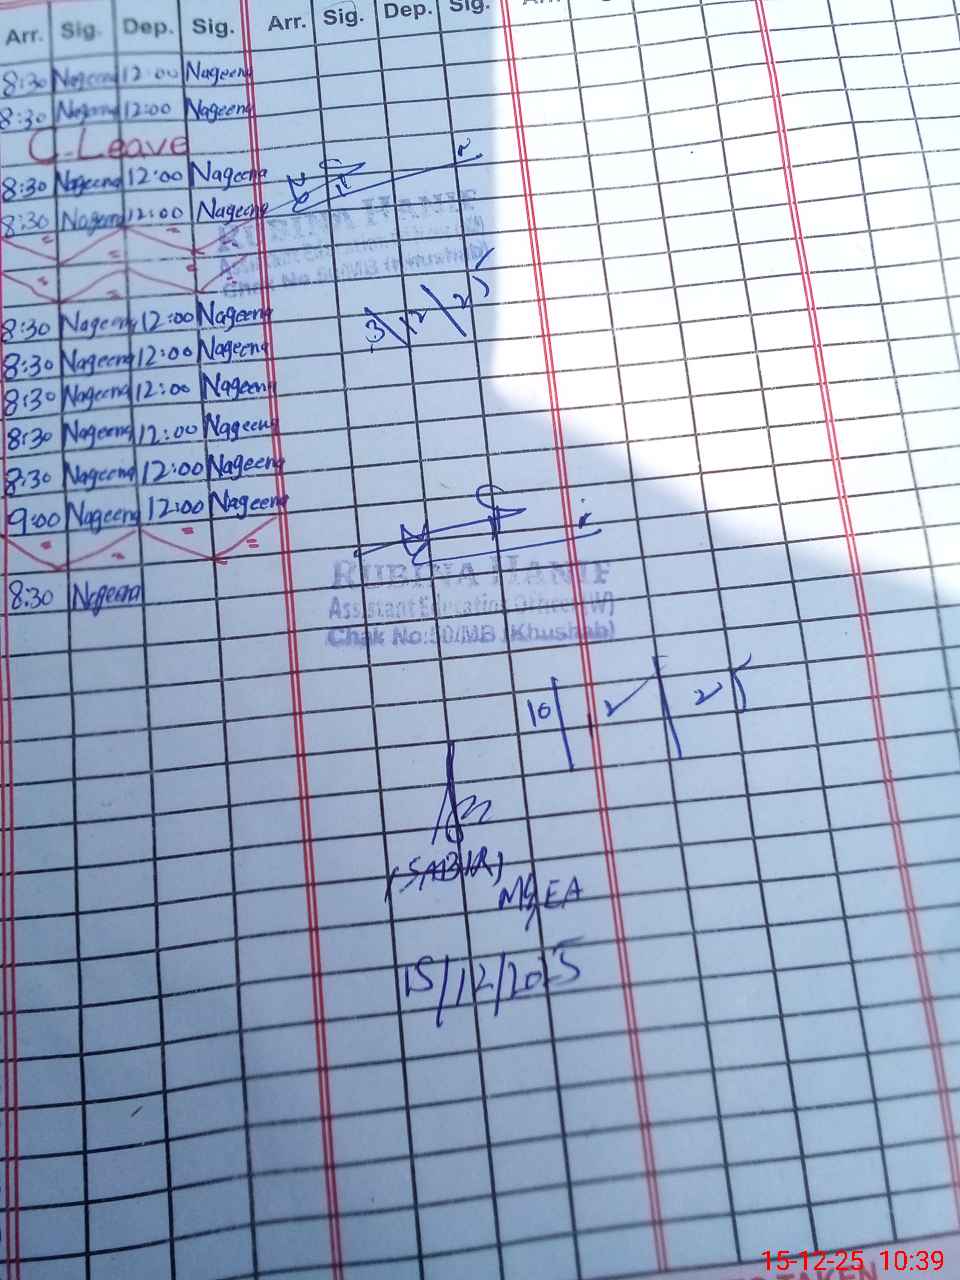 Arr. Sig. Dep. Sig. Arr. Sig. Dep. Sig.
8:30 Nageena 12:00 Nageena
8:30 Nageena 12:00 Nageena
C. Leave
8:30 Nageena 12:00 Nageena
8:30 Nageena 12:00 Nageena
RUBINA HANIF
3/12/25
8:30 Nageena 12:00 Nageena
8:30 Nageena 12:00 Nageena
8:30 Nageena 12:00 Nageena
8:30 Nageena 12:00 Nageena
8:30 Nageena 12:00 Nageena
9:00 Nageena 12:00 Nageena
8:30 Nageena
RUBINA HANIF
Assistant Education Officer (W)
Chak No:50/MB (Khushab)
(SABIR)
MEA
15/12/2025
15-12-25 10:39